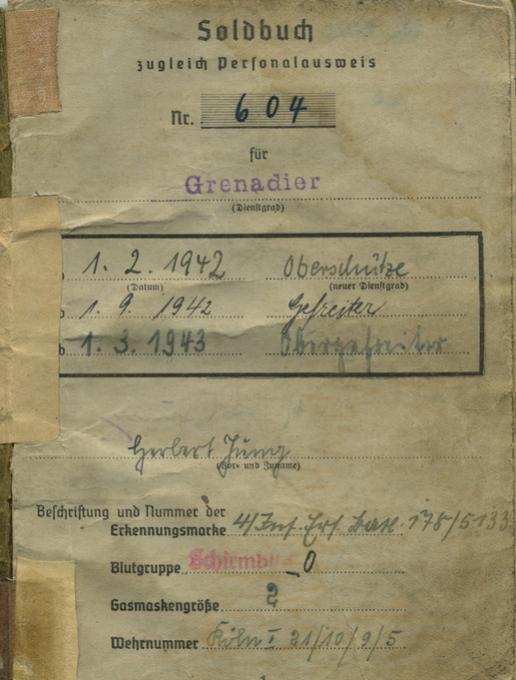 Soldbuch
zugleich Personalausweis
Nr. 604
für
Grenadier
(Dienstgrad)
1. 2. 1942 Oberschütze
(Datum) (neuer Dienstgrad)
1. 9. 1942 Gefreiter
b 1. 3. 1943 Obergefreiter
Herbert Jung
(Vor- und Zuname)
Beschriftung und Nummer der
Erkennungsmarke 4/Inf. Ers. Batl. 178/5133
Blutgruppe O
Gasmaskengröße 2
Wehrnummer Köln I 21/10/9/5